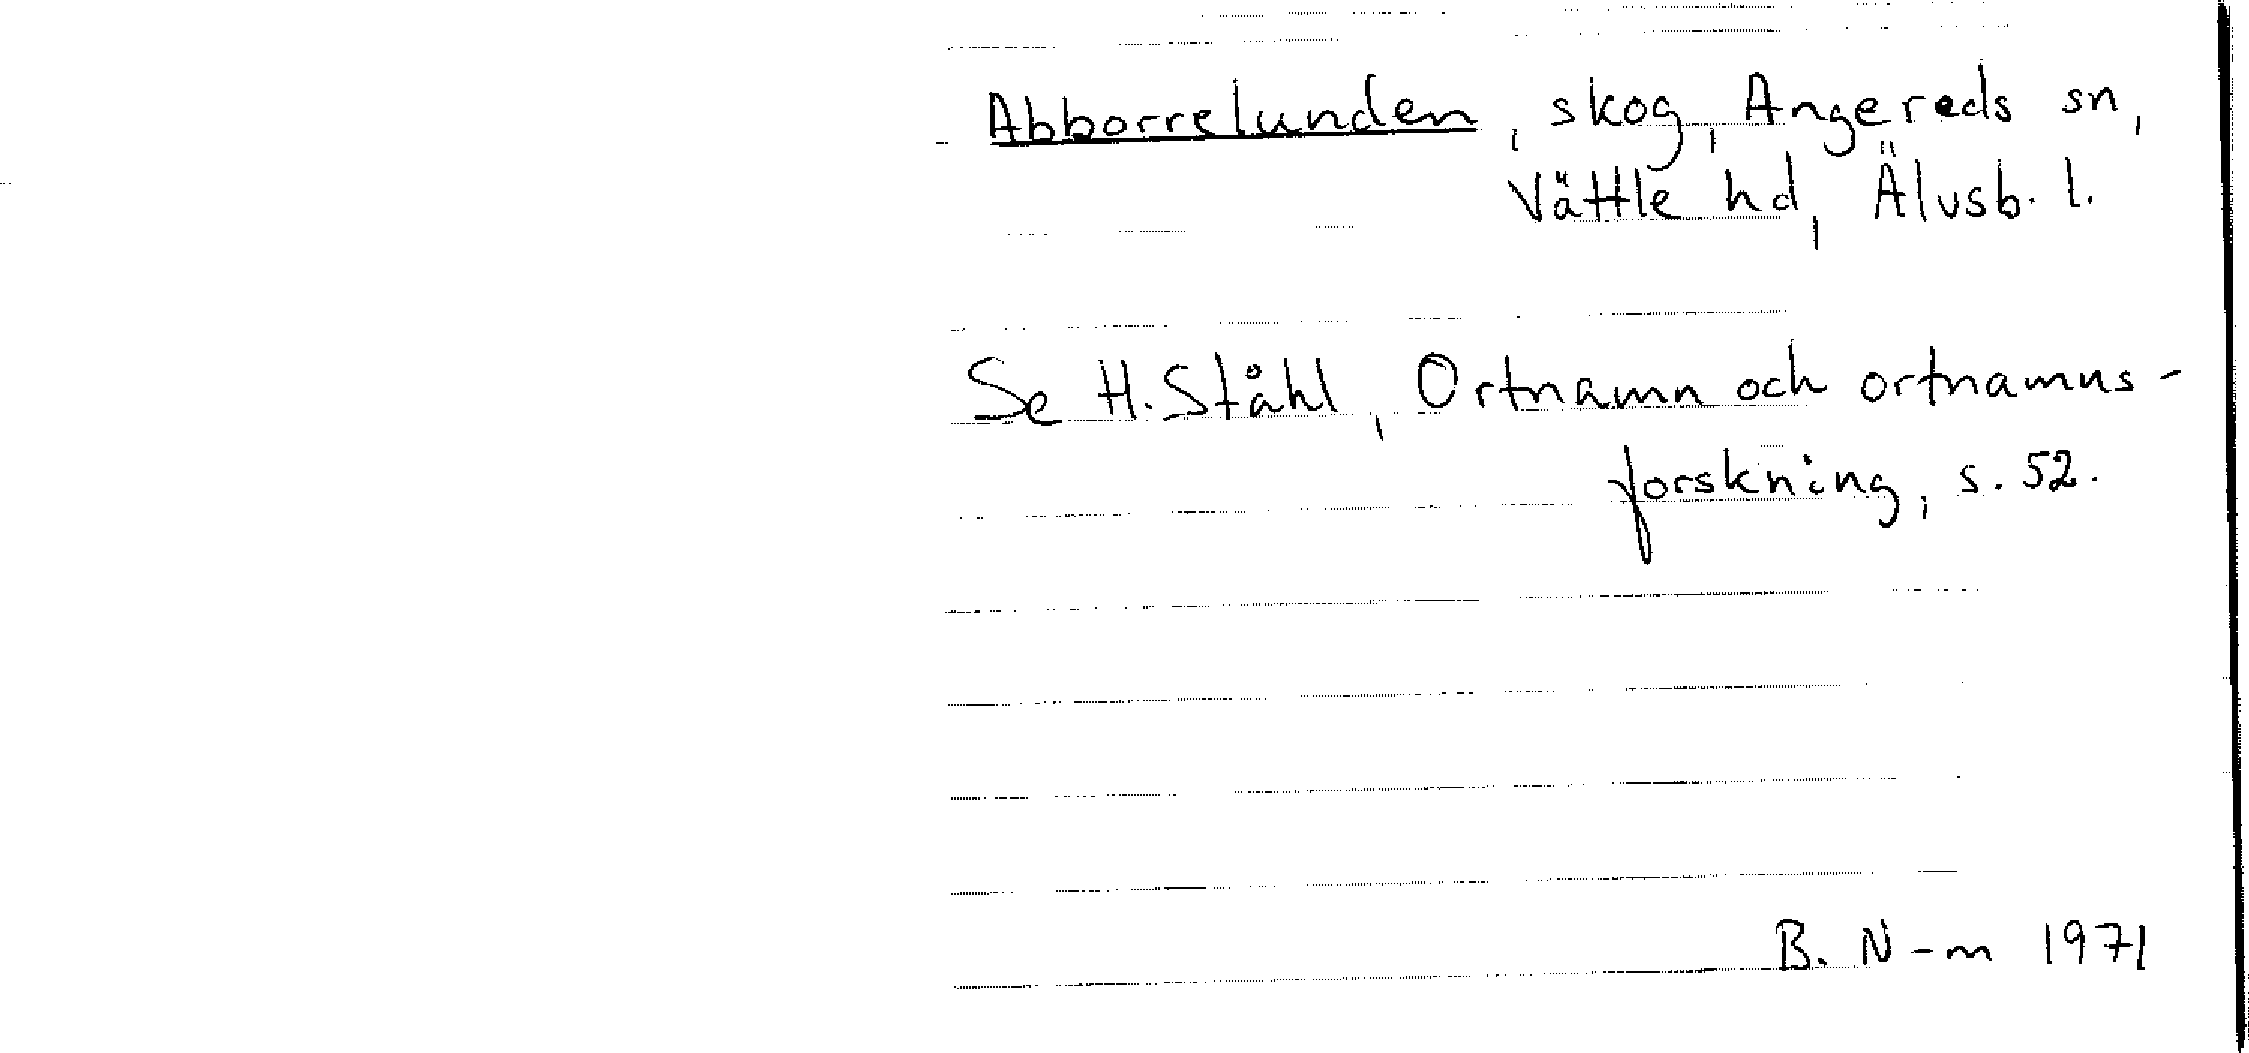 Abborrelunden, skog, Angereds sn,
Vättle hd, Älvsb. l.
Se H. Ståhl, Ortnamn och ortnamns-
forskning, s. 52.
B. N-m 1971